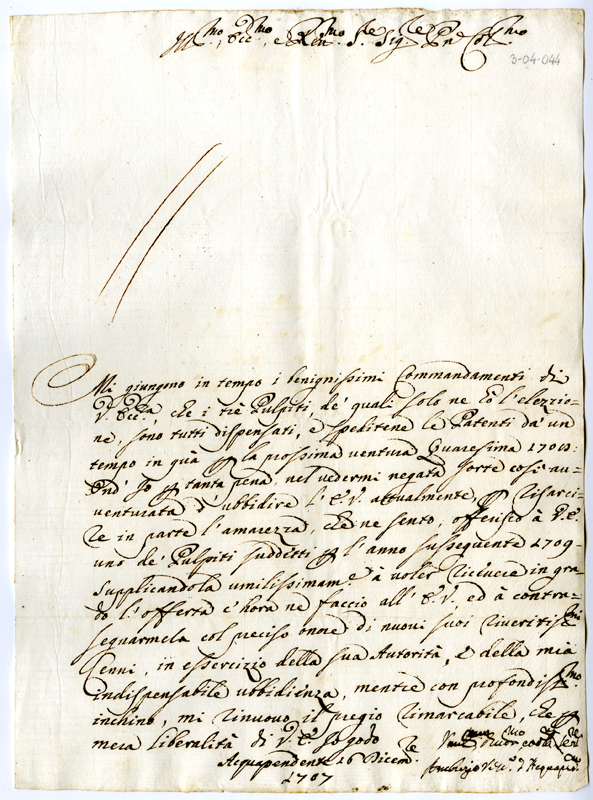 Ill.mo, Ecc.mo, e Rev.mo S.re Sig.re P.ne Col.mo
3-04-044
Mi giungono in tempo i benignissimi Commandamenti di
V. Ecc.za, che i trè Pulpiti, de' quali solo ne hò l'elezzio-
ne, sono tutti dispensati, e speditene le Patenti dà un
tempo in quà p la prossima ventura Quaresima 1708:
Ond' Io p tanta pena, nel vedermi negata sorte così av-
venturata d'ubbidire l'E.V. attualmente, p risarci-
re in parte l'amarezza, che ne sento, offerisco à V.E.
uno de' Pulpiti suddetti p l'anno susseguente 1709.
Supplicandola umilissimam.e à voler ricever in gra-
do l'offerta c'hora ne faccio all' E.V., ed à contra-
segnarmela col preciso onore di nuovi suoi riveritiss.mi
Cenni, in essercizio della sua Autorità, e della mia
indispensabile ubbidienza, mentre con profondiss.mo
inchino, mi rinuovo il pregio rimarcabile, che p
mera liberalità di V.E. Io godo
Acquapendente 16 Dicem.re
1707